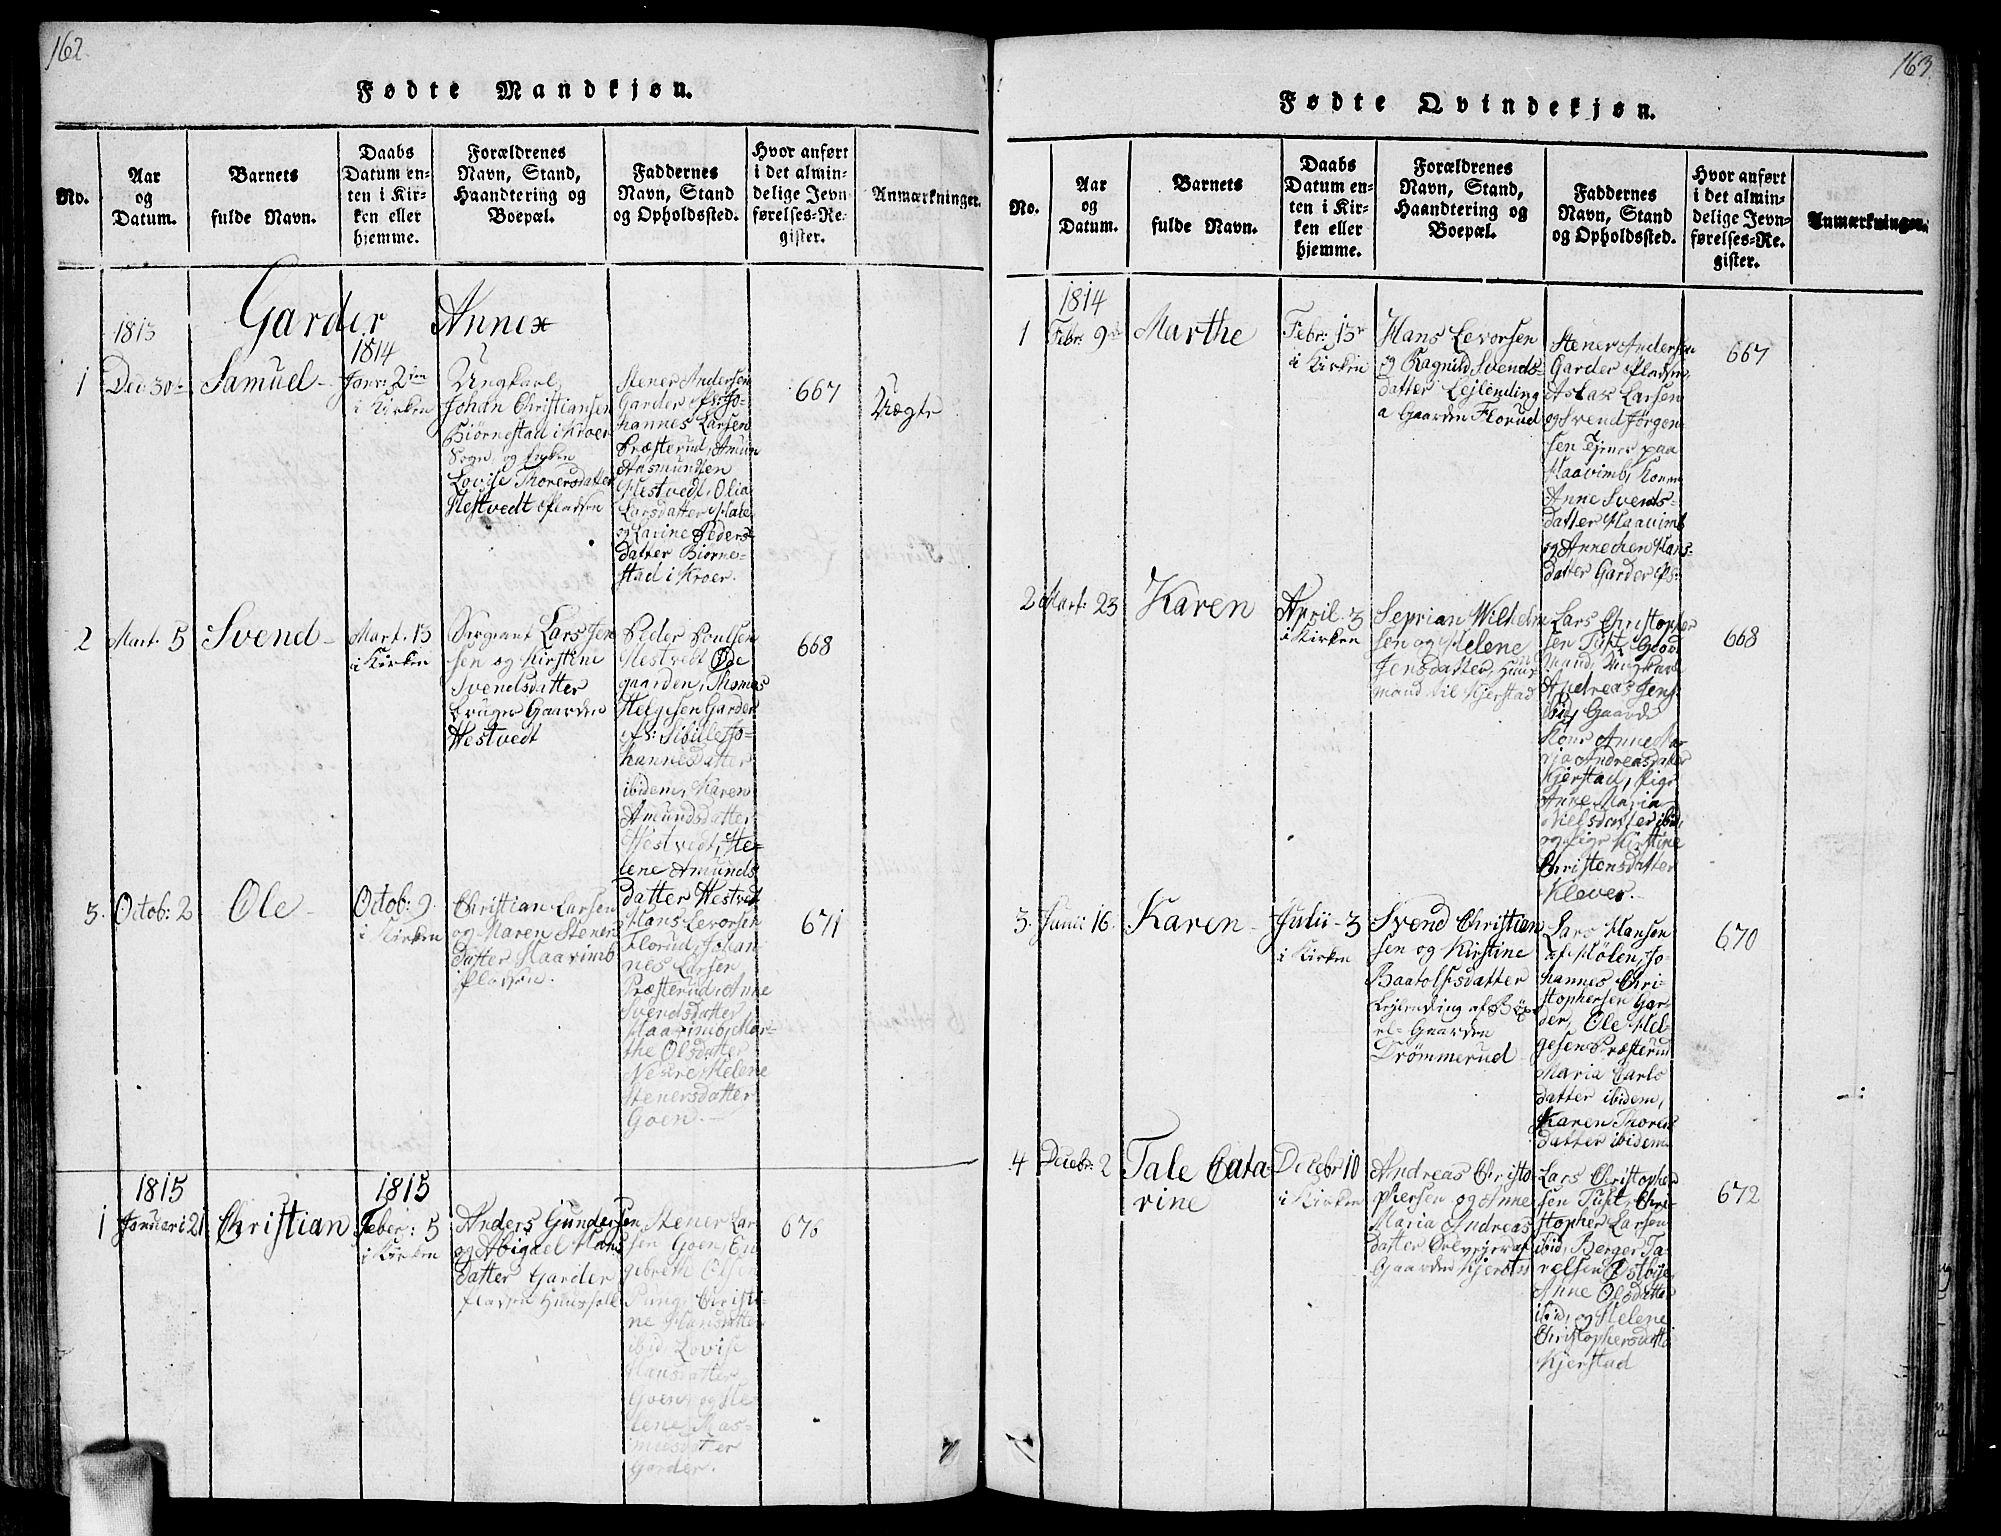 162.
Fødte Mandkjøn.
No.
Aar
og
Datum.
Barnets
fulde Navn.
Daabs
Datum en-
ten i Kir-
ken eller
hjemme.
Forældrenes
Navn, Stand,
Haandtering og
Boepæl.
Faddernes
Navn, Stand
og Opholdssted.
Hvor anført
i det almin-
delige Jevn-
førelses-Re-
gister.
Anmærkninger.
Garder Annex
1813
1
Dec: 30
Samuel
1814
Janri 2den
i Kirken
Ungkarl
Johan Christiansen
Biörnestad i Kroer
Sogn og
Lovise Thorersdatter
Hestvedt Pladsen
Stener Andersen
Garder Jo-
hannes Larsen
Præsterud, Amun
Aasmundsen
Hestvedt, Olia
Larsdatter
og Karine Peders-
datter Biörne-
stad i Kroer.
667
Uægte
2
Mart. 5
Svend
Mart. 13
i Kirken
Sergeant Lars
sen og Kirstine
Svendsdatter
bruger Gaarden
Hestvedt
Peder Poulsen
Hestvedt Öde
gaarden, Thomas
Helgesen Garder
Sibille Jo-
hannesdatter
ibidem, Karen
Amundsdatter
Hestvedt, He-
lene Amunds
datter Hestvedt
668
3.
Octob: 2
Ole
Octob: 9.
i Kirken
Christian Larsen
og Karen Steners
datter Haavimb
Pladsen.
Hans Levorsen
Florud, Johan
nes Larsen
Præsterud, Anne
Svendsdatter
Haavimb, Mar-
the Olsdatter
Helene
Stenersdatter
Goen.
671
1815
1
Januari 21
Christian
1815
Feber: 5
i Kirken
Anders Gundersen
og Abigael Hans
datter Garder
Pladsen
Stener Lar
sen Goen, En
gebreth Olsen
Pung, Christi-
ne Hansdatter
ibid Lovise
Hansdatter
Goen, og He
lene Ras-
musdatter
Garder.
163.
Fødte Qvindekjøn.
No.
Aar
og
Datum.
Barnets
fulde Navn.
Daabs
Datum en-
ten i Kir-
ken eller
hjemme.
Forældrenes
Navn, Stand,
Haandtering og
Boepæl.
Faddernes
Navn, Stand
og Opholdssted.
Hvor anført
i det almin-
delige Jevn-
førelses-Re-
gister.
Anmærkninger.
1814
1
Febr: 9
Marthe
Febr: 13
i Kirken
Hans Levorsen
og Ragnild Svends-
datter Leilending
a Gaarden Florud
Stener Andersen
Garder Pladsen,
Aslak Larsen
og Svend Jörgen
sen Tjener paa
Haavimb, Konen
Anne Svends-
datter Haavimb
og Annechen Hans-
datter Garder
667
2
Mart: 23
Karen
April. 3
i Kirken
Seprian Wilhelm
sen og Helene
Jensdatter, Huus
mand til Kjerstad
Lars Christopher
sen Tust, Gaard
Mand, Ungkarl
Andreas Jens:
ibid, Gaard
Kone Anne Ma
ria Andreasdatter
Kjerstad, Pige
Anne Maria
Nielsdatter ibid,
og Pige Kirstine
Christensdatter
Klever.
668
3.
Junii 16.
Karen
Julii 3
i Kirken
Svend Christian
sen og Kirstine
Baatolfsdatter
Leilending af
Gaarden
Drömmerud
Lars Hansen
af Mölen, Jo-
hannes Chri-
stophersen Gar-
der, Ole Hel-
gesen Præsterud
Maria Carls
datter ibidem,
Karen Thoren
datter ibidem
670
4
Decebr: 2
Tale Cata
rine
Decebr 10
i Kirken
Andreas Christo
phersen og Anne
Maria Andreas
datter
Gaarden
Lars Christopher
sen Tust, Chri-
stopher Larsen
ibid, Berger Ta-
relsen Östbye,
Anne Olsdatter
ibid, og Helene
Christophersdatter
Kjerstad
672